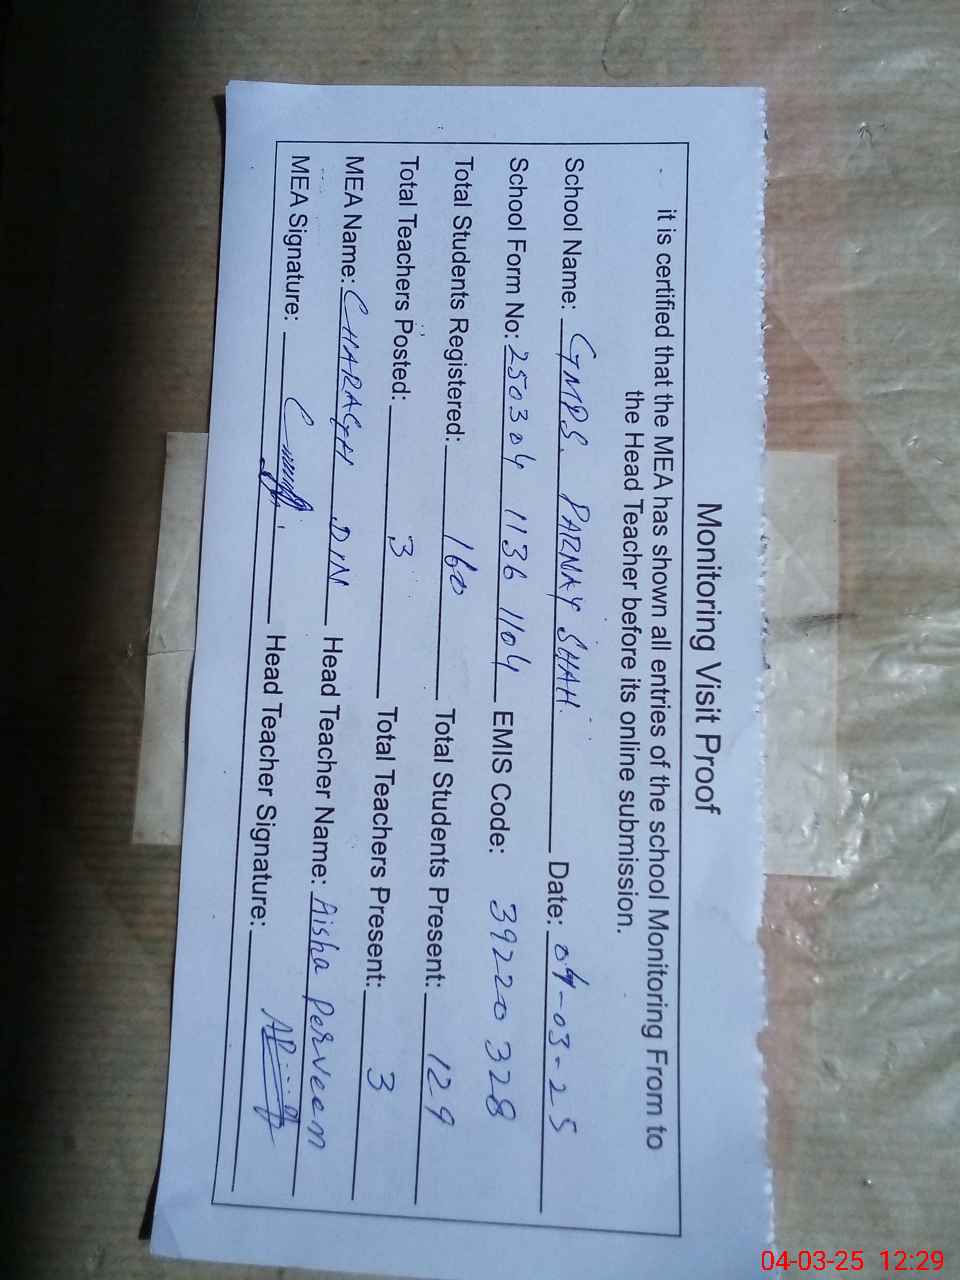 Monitoring Visit Proof
it is certified that the MEA has shown all entries of the school Monitoring From to
the Head Teacher before its online submission.
School Name: GMPS. PARNAY SHAH. Date: 04-03-25
School Form No: 250304 1136 1104 EMIS Code: 39220328
Total Students Registered: 160 Total Students Present: 129
Total Teachers Posted: 3 Total Teachers Present: 3
MEA Name: CHARAGH DIN Head Teacher Name: Aisha Perveen
MEA Signature: Head Teacher Signature:
04-03-25 12:29